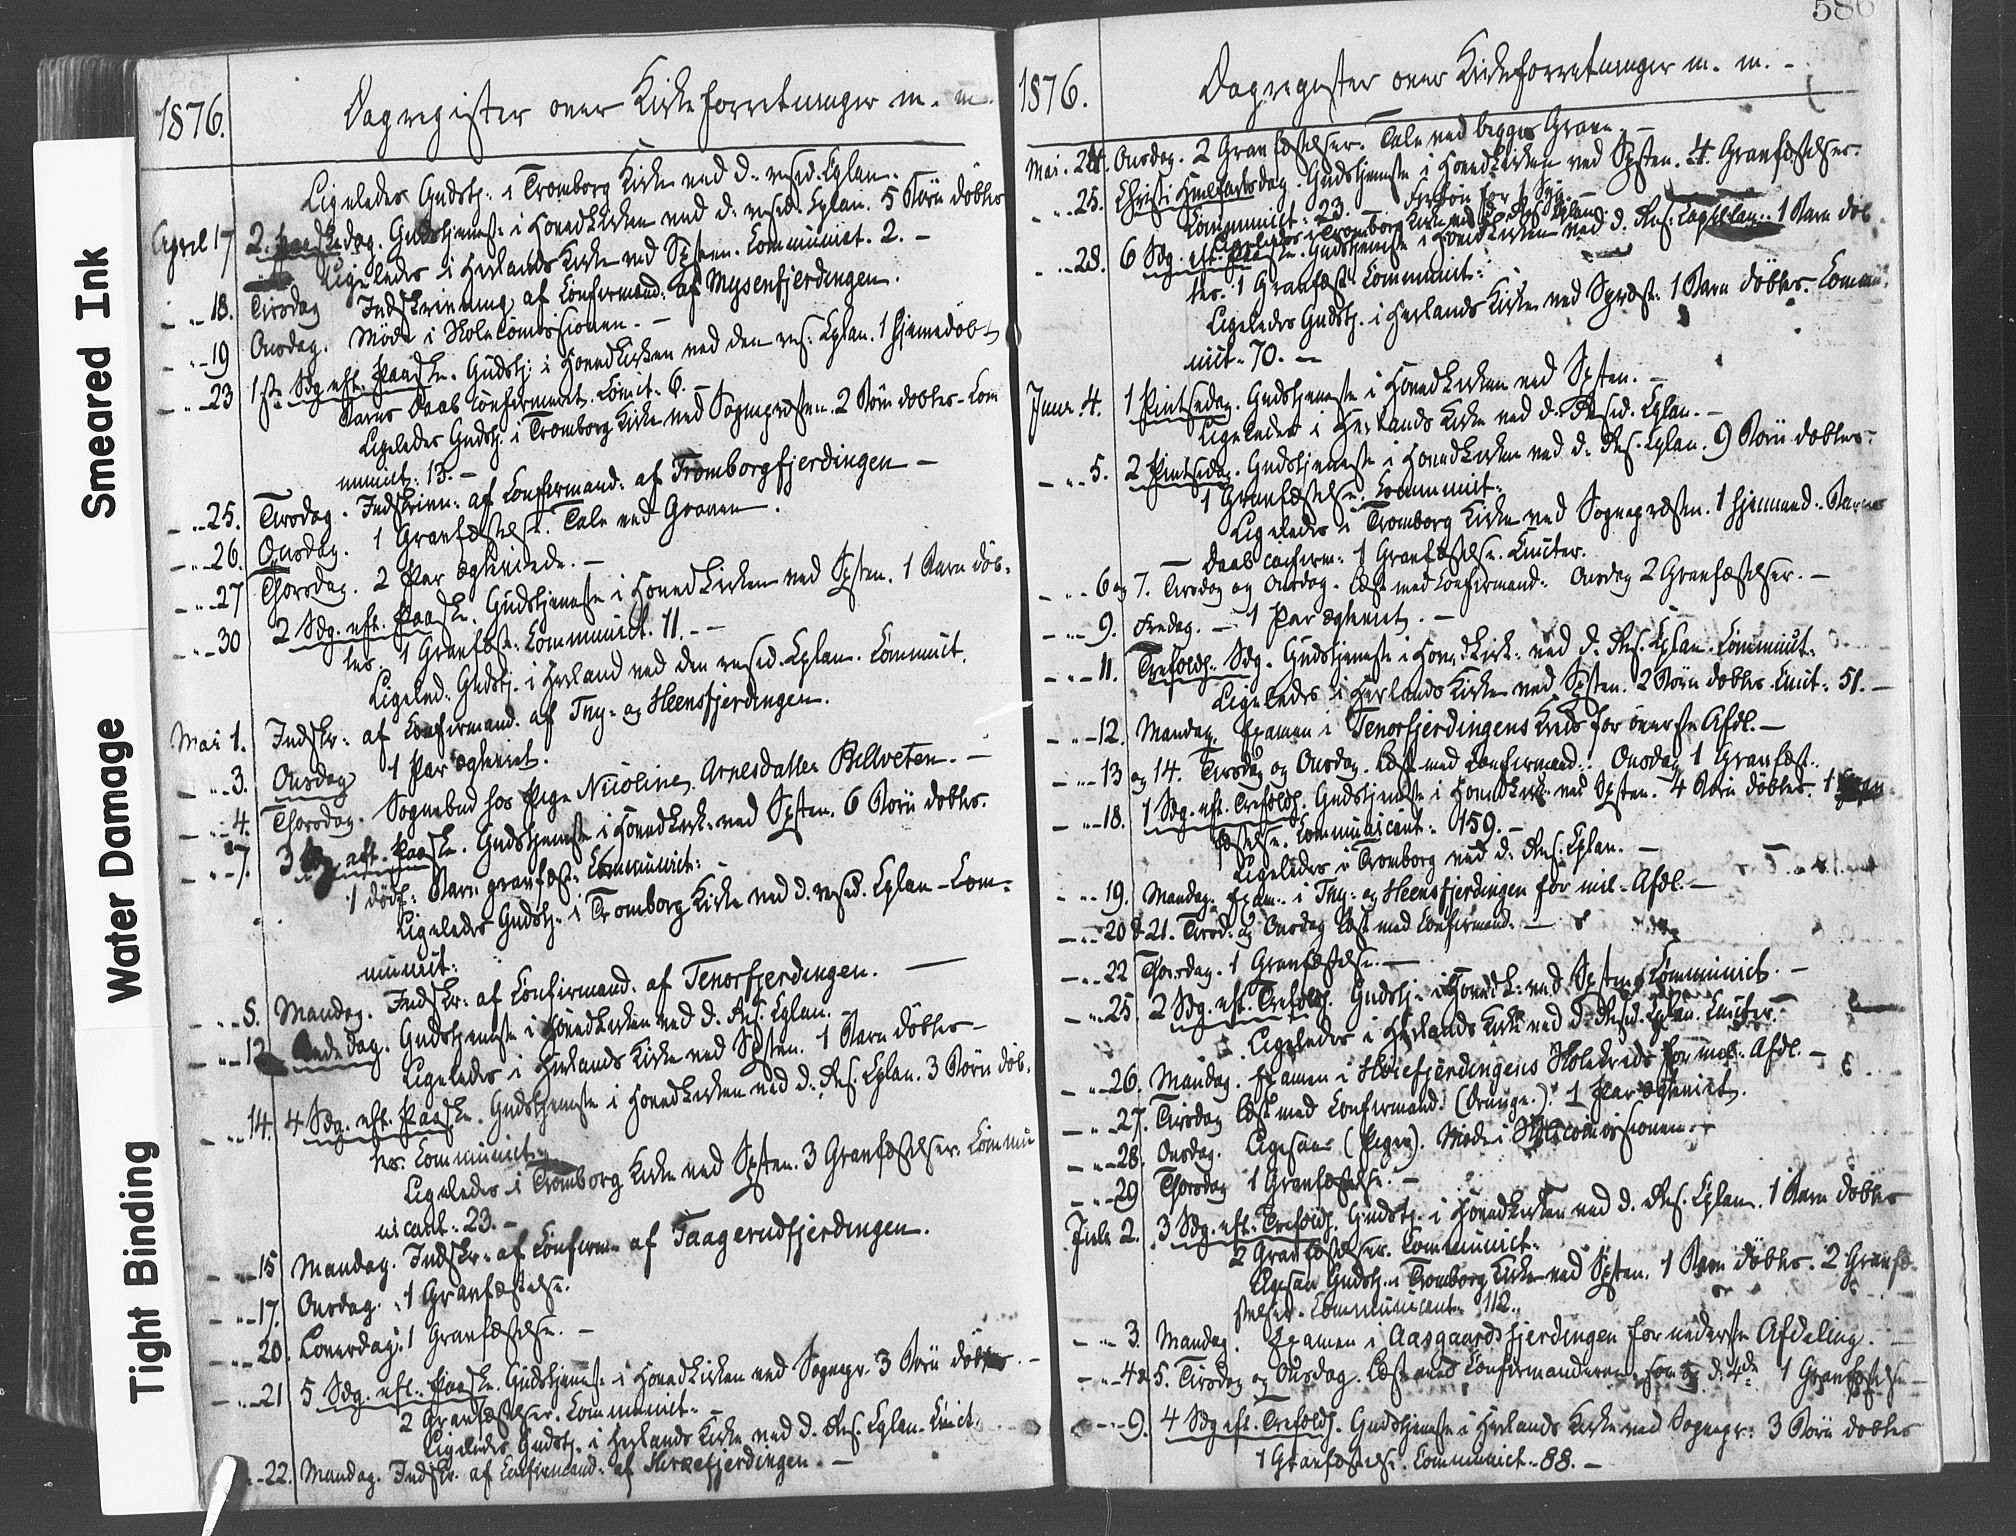 Smeared Ink
Water Damage
Tight Binding
1876.
Dagregister over Kirkeforretninger m. m.
Ligeledes Gudstj. i Tromborg Kirke ved d. resid. Cplan.
April 17 2. Paaskedag. Gudstjeneste i Hovedkirken ved d. resid. Cplan. 5 Børn døbtes
Ligeledes i Herlands Kirke ved Spsten. Communict. 2. –
– „ – 18. Tirsdag Indskrivning af Confirmand: af Mysenfjerdingen.
– „ – 19 Onsdag. Møde i Skolecomissionen. –
– „ – 23 1ste Sdg. eft. Paaske. Gudstj: i Hovedkirken ved den res: Cplan. 1 hjemmedøbt
Barns Daab confirmeret. Comict: 6. –
Ligeledes Gudstj. i Tromborg Kirke ved Sognepræsten. 2 Børn døbtes – Com
munict: 13. –
– „ – 25. Tirsdag. Indskrivn: af Confirmand: af Tromborgfjerdingen –
– „ – 26. Onsdag. 1 Gravfæstelse. Tale ved Graven.
– „ – 27 Thorsdag. 2 Par ægteviede. –
– „ – 30 2 Sdg. eft. Paaske. Gudstjeneste i Hovedkirken ved Spsten. 1 Barn døb-
tes. 1 Gravfæst. Communict. 11. – –
Ligeled. Gudstj. i Herland ved den resid. Cplan. Commuct.
Mai 1. Indskr: af Confirmand. af Tny- og Heensfjerdingen.
– „ – 3. Onsdag 1 Par ægteviet.
– „ – 4. Thorsdag. Sognebud hos Pige Nicoline Arnesdatter Billveten. –
– „ – 7. 3 Sdg. eft. Paaske. Gudstjeneste i Hovedkirk: ved Spsten. 6 Børn døbtes.
1 dødf: Barn gravfæst: Communict: –
Ligeledes Gudstj. i Tromborg Kirke ved d. resid. Cplan – Com-
municit:
– „ – 8. Mandag. Indskr: af Confirmand: af Tenorfjerdingen. –
– „ – 12 Bededag. Gudstjeneste i Hovedkirken ved d. Res. Cplan. –
Ligeledes i Herlands Kirke ved Spsten. 1 Barn døbtes –
– „ – 14. 4 Sdg. eft. Paaske. Gudstjeneste i Hovedkirken ved d. Res. Cplan. 3 Børn døb-
tes. Communict:
Ligeledes i Tromborg Kirke ved Spsten. 3 Gravfæstelser. Commu
nicant: 23. –
– „ – 15 Mandag. Indskr: af Confirm. af Taagerudfjerdingen.
– „ – 17. Onsdag. 1 Gravfæstelse.
– „ – 20. Løverdag. 1 Gravfæstelse. –
– „ – 21 5 Sdg. eft. Paaske. Gudstjeneste i Hovedkirken ved Sognepr. 3 Børn døbtes. –
2 Gravfæstelser. Communict: –
Ligeledes Gudstj. i Herlands Kirke ved d. Res. Cplan. Cmict.
– „ – 22. Mandag. Indskr. af Confirmand: af fjerdingen. –
586
1876.
Dagregister over Kirkeforretninger m. m. –
Mai. 24. Onsdag. 2 Gravfæstelser. Tale ved begges Grave –
– „ – 25. Christi Himlfartsdag. Gudstjeneste i Hovedkirken ved Spsten. 4 Gravfæstelser.
Communict: 23. – Forbøn for 1 Syg. –
Ligeledes i Tromborg Kirke ved d. Res. Cplan.
– „ – 28. 6 Sdg. eft. Paaske. Gudstjeneste i Hovedkirken ved d. Res. Capellan. 1 Barn døb
tes. 1 Gravfæst. Communict:
Ligeledes Gudstj. i Herlands Kirke ved Spræst: 1 Barn døbtes. Commu
nict. 70. –
Juni. 4. 1 Pintsedag. Gudstjeneste i Hovedkirken ved Spsten. –
Ligeledes i Herlands Kirke ved d. Resid. Cplan. –
– „ – 5. 2 Pintsedag. Gudstjeneste i Hovedkirken ved d. Res. Cplan. 9 Børn døbtes.
1 Gravfæstelse. Communict:
Ligeledes i Tromborg Kirke ved Sognepræsten. 1 hjemmed. Barns
– Daab confirm: 1 Gravfæstelse. Cmicter.
– „ – 6 og 7. Tirsdag og Onsdag. Læst med Confirmand: Onsdag 2 Gravfæstelser. –
– „ – 9. Fredag. – 1 Par ægteviet. –
– „ – 11. Trefoldh. Sdg. Gudstjeneste i Hovedkirk: ved d. Res. Cplan. Communict:
Ligeledes i Herlands Kirke ved Spsten. 2 Børn døbtes. Cmict: 51. –
– „ – 12. Mandag. Examen i Tenorfjerdingens Kreds for øverste Afdl. –
– „ – 13 og 14. Tirsdag og Onsdag. Læst med Confirmand: Onsdag 1 Gravfæst.
– „ – 18. 1 Sdg. eft. Trefoldh. Gudstjeneste i Hovedkirk: ved Spsten. 4 Børn døbtes. 1 Grav
fæstelse. Communicant: 159. –
Ligeledes i Tromborg ved d. Res. Cplan. –
– „ – 19. Mandag. Exam. i Tny- og Heensfjerdingen for mel. Afdl. –
– „ – 20 & 21. Tirsd. og Onsdag læst med Confirmand. –
– „ – 22 Thorsdag. 1 Gravfæstelse. –
– „ – 25. 2 Sdg. eft. Trefoldh. Gudstj. i Hovedk: ved Spsten. Communict. –
Ligeledes i Herlands Kirke ved d. Resid. Cplan. Cmicter. –
– „ – 26. Mandag. Examen i Høiefjerdingens Skolekreds for mel. Afdl. –
– „ – 27. Tirsdag læst med Confirmand. (Drenge.). 1 Par ægteviet.
– „ – 28. Onsdag. Ligesaa (Piger). Møde i Skolecomissionen. –
– „ – 29 Thorsdag 1 Gravfæstelse. –
Juli 2. 3 Sdg. eft. Trefoldh. Gudstj. i Hovedkirken ved d. Res. Cplan. 1 Barn døbtes
2 Gravfæstelser. Communict:
Ligesaa Gudstj. i Tromborg Kirke ved Spsten. 1 Barn døbtes. 2 Gravfæ-
stelser. Communicant: 112.
– „ – 3 Mandag. Examen i Aasgaardsfjerdingen for nederste Afdeling. –
– „ – 4 & 5. Tirsdag og Onsdag. Læst med Confirmanderne, d. 4de 1 Gravfæstelse
– „ – 9. 4 Sdg eft. Trefoldh. Gudstjeneste i Herlands Kirke ved Sognepr: 3 Børn døbtes
1 Gravfæstelse. Communict. 88. –